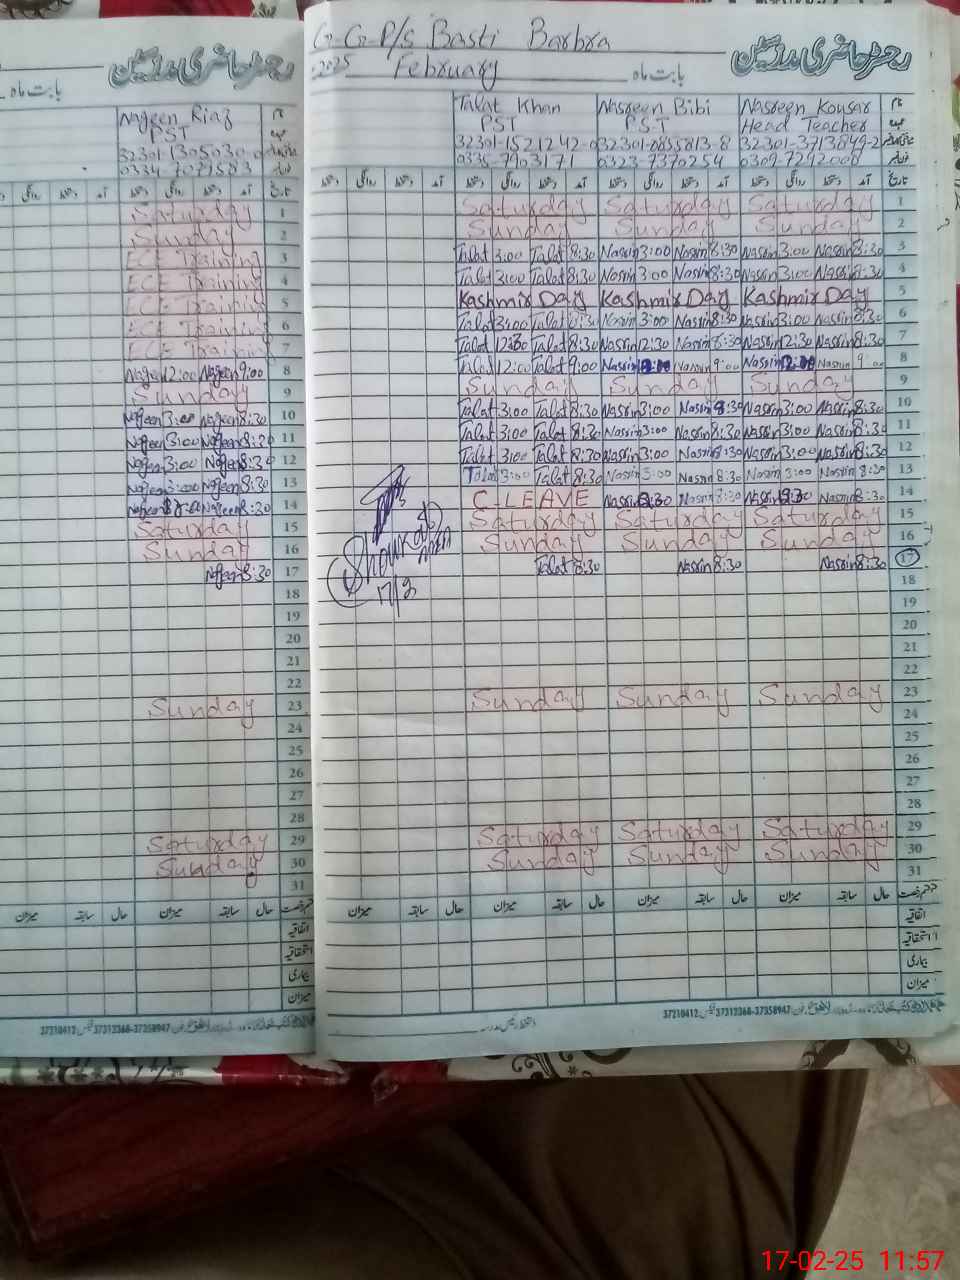 G-G-P/s Basti Barbra
رجسٹر حاضری مدرسین
2025 February بابت ماہ
Talat Khan Nasreen Bibi Nasreen Kousar نام
PST PST Head Teacher
32301-1521242-0 32301-0835813-8 32301-3713849-2
0335-7903171 0323-7370254 0309-7292008
دستخط روانگی دستخط آمد دستخط روانگی دستخط آمد دستخط روانگی دستخط آمد دستخط روانگی دستخط آمد تاریخ
Saturday Saturday Saturday 1
Sunday Sunday Sunday 2
Talat 3:00 Talat 8:30 Nasrin 3:00 Nasrin 8:30 Nasrin 3:00 Nasrin 8:30 3
Talat 3:00 Talat 8:30 Nasrin 3:00 Nasrin 8:30 Nasrin 3:00 Nasrin 8:30 4
Kashmir Day Kashmir Day Kashmir Day 5
Talat 3:00 Talat 8:30 Nasrin 3:00 Nasrin 8:30 Nasrin 3:00 Nasrin 8:30 6
Talat 12:30 Talat 8:30 Nasrin 12:30 Nasrin 8:30 Nasrin 12:30 Nasrin 8:30 7
Talat 12:00 Talat 9:00 Nasrin Nasrin 9:00 Nasrin Nasrin 9:00 8
Sunday Sunday Sunday 9
Talat 3:00 Talat 8:30 Nasrin 3:00 Nasrin 8:30 Nasrin 3:00 Nasrin 8:30 10
Talat 3:00 Talat 8:30 Nasrin 3:00 Nasrin 8:30 Nasrin 3:00 Nasrin 8:30 11
Talat 3:00 Talat 8:30 Nasrin 3:00 Nasrin 8:30 Nasrin 3:00 Nasrin 8:30 12
Talat 3:00 Talat 8:30 Nasrin 3:00 Nasrin 8:30 Nasrin 3:00 Nasrin 8:30 13
C-LEAVE Nasrin Nasrin 8:30 Nasrin Nasrin 8:30 14
Saturday Saturday Saturday 15
Sunday Sunday Sunday 16
Talat 8:30 Nasrin 8:30 Nasrin 8:30 17
Shoukat
17/2
18
19
20
21
22
Sunday Sunday Sunday 23
24
25
26
27
28
Saturday Saturday Saturday 29
Sunday Sunday Sunday 30
31
میزان سابقہ حال میزان سابقہ حال میزان سابقہ حال میزان سابقہ حال
اتفاقیہ
استحقاقیہ
بیماری
میزان
37210412 37312368-37358947
رجسٹر حاضری مدرسین
بابت ماہ
Najeen Riaz نام
PST
32301-1305030-0
0334-7071583
دستخط روانگی دستخط آمد دستخط روانگی دستخط آمد تاریخ
Saturday 1
Sunday 2
ECE Training 3
ECE Training 4
ECE Training 5
ECE Training 6
ECE Training 7
Najeen 12:00 Najeen 9:00 8
Sunday 9
Najeen 3:00 Najeen 8:30 10
Najeen 3:00 Najeen 8:30 11
Najeen 3:00 Najeen 8:30 12
Najeen 3:00 Najeen 8:30 13
Najeen Najeen 8:30 14
Saturday 15
Sunday 16
Najeen 8:30 17
18
19
20
21
22
Sunday 23
24
25
26
27
28
Saturday 29
Sunday 30
31
میزان سابقہ حال میزان سابقہ حال
اتفاقیہ
استحقاقیہ
بیماری
میزان
37210412 37312368-37358947
17-02-25 11:57